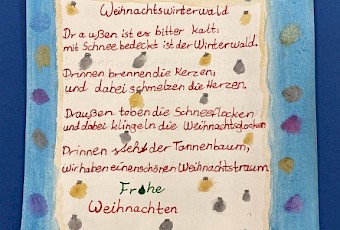 Weihnachtswinterwald
Draußen ist es bitter kalt,
mit Schnee bedeckt ist der Winterwald.
Drinnen brennen die Kerzen,
und dabei schmelzen die Herzen.
Draußen toben die Schneeflocken
und dabei klingeln die Weihnachtsglocken
Drinnen steht der Tannenbaum,
wir haben einen schönen Weihnachtstraum
Frohe
Weihnachten